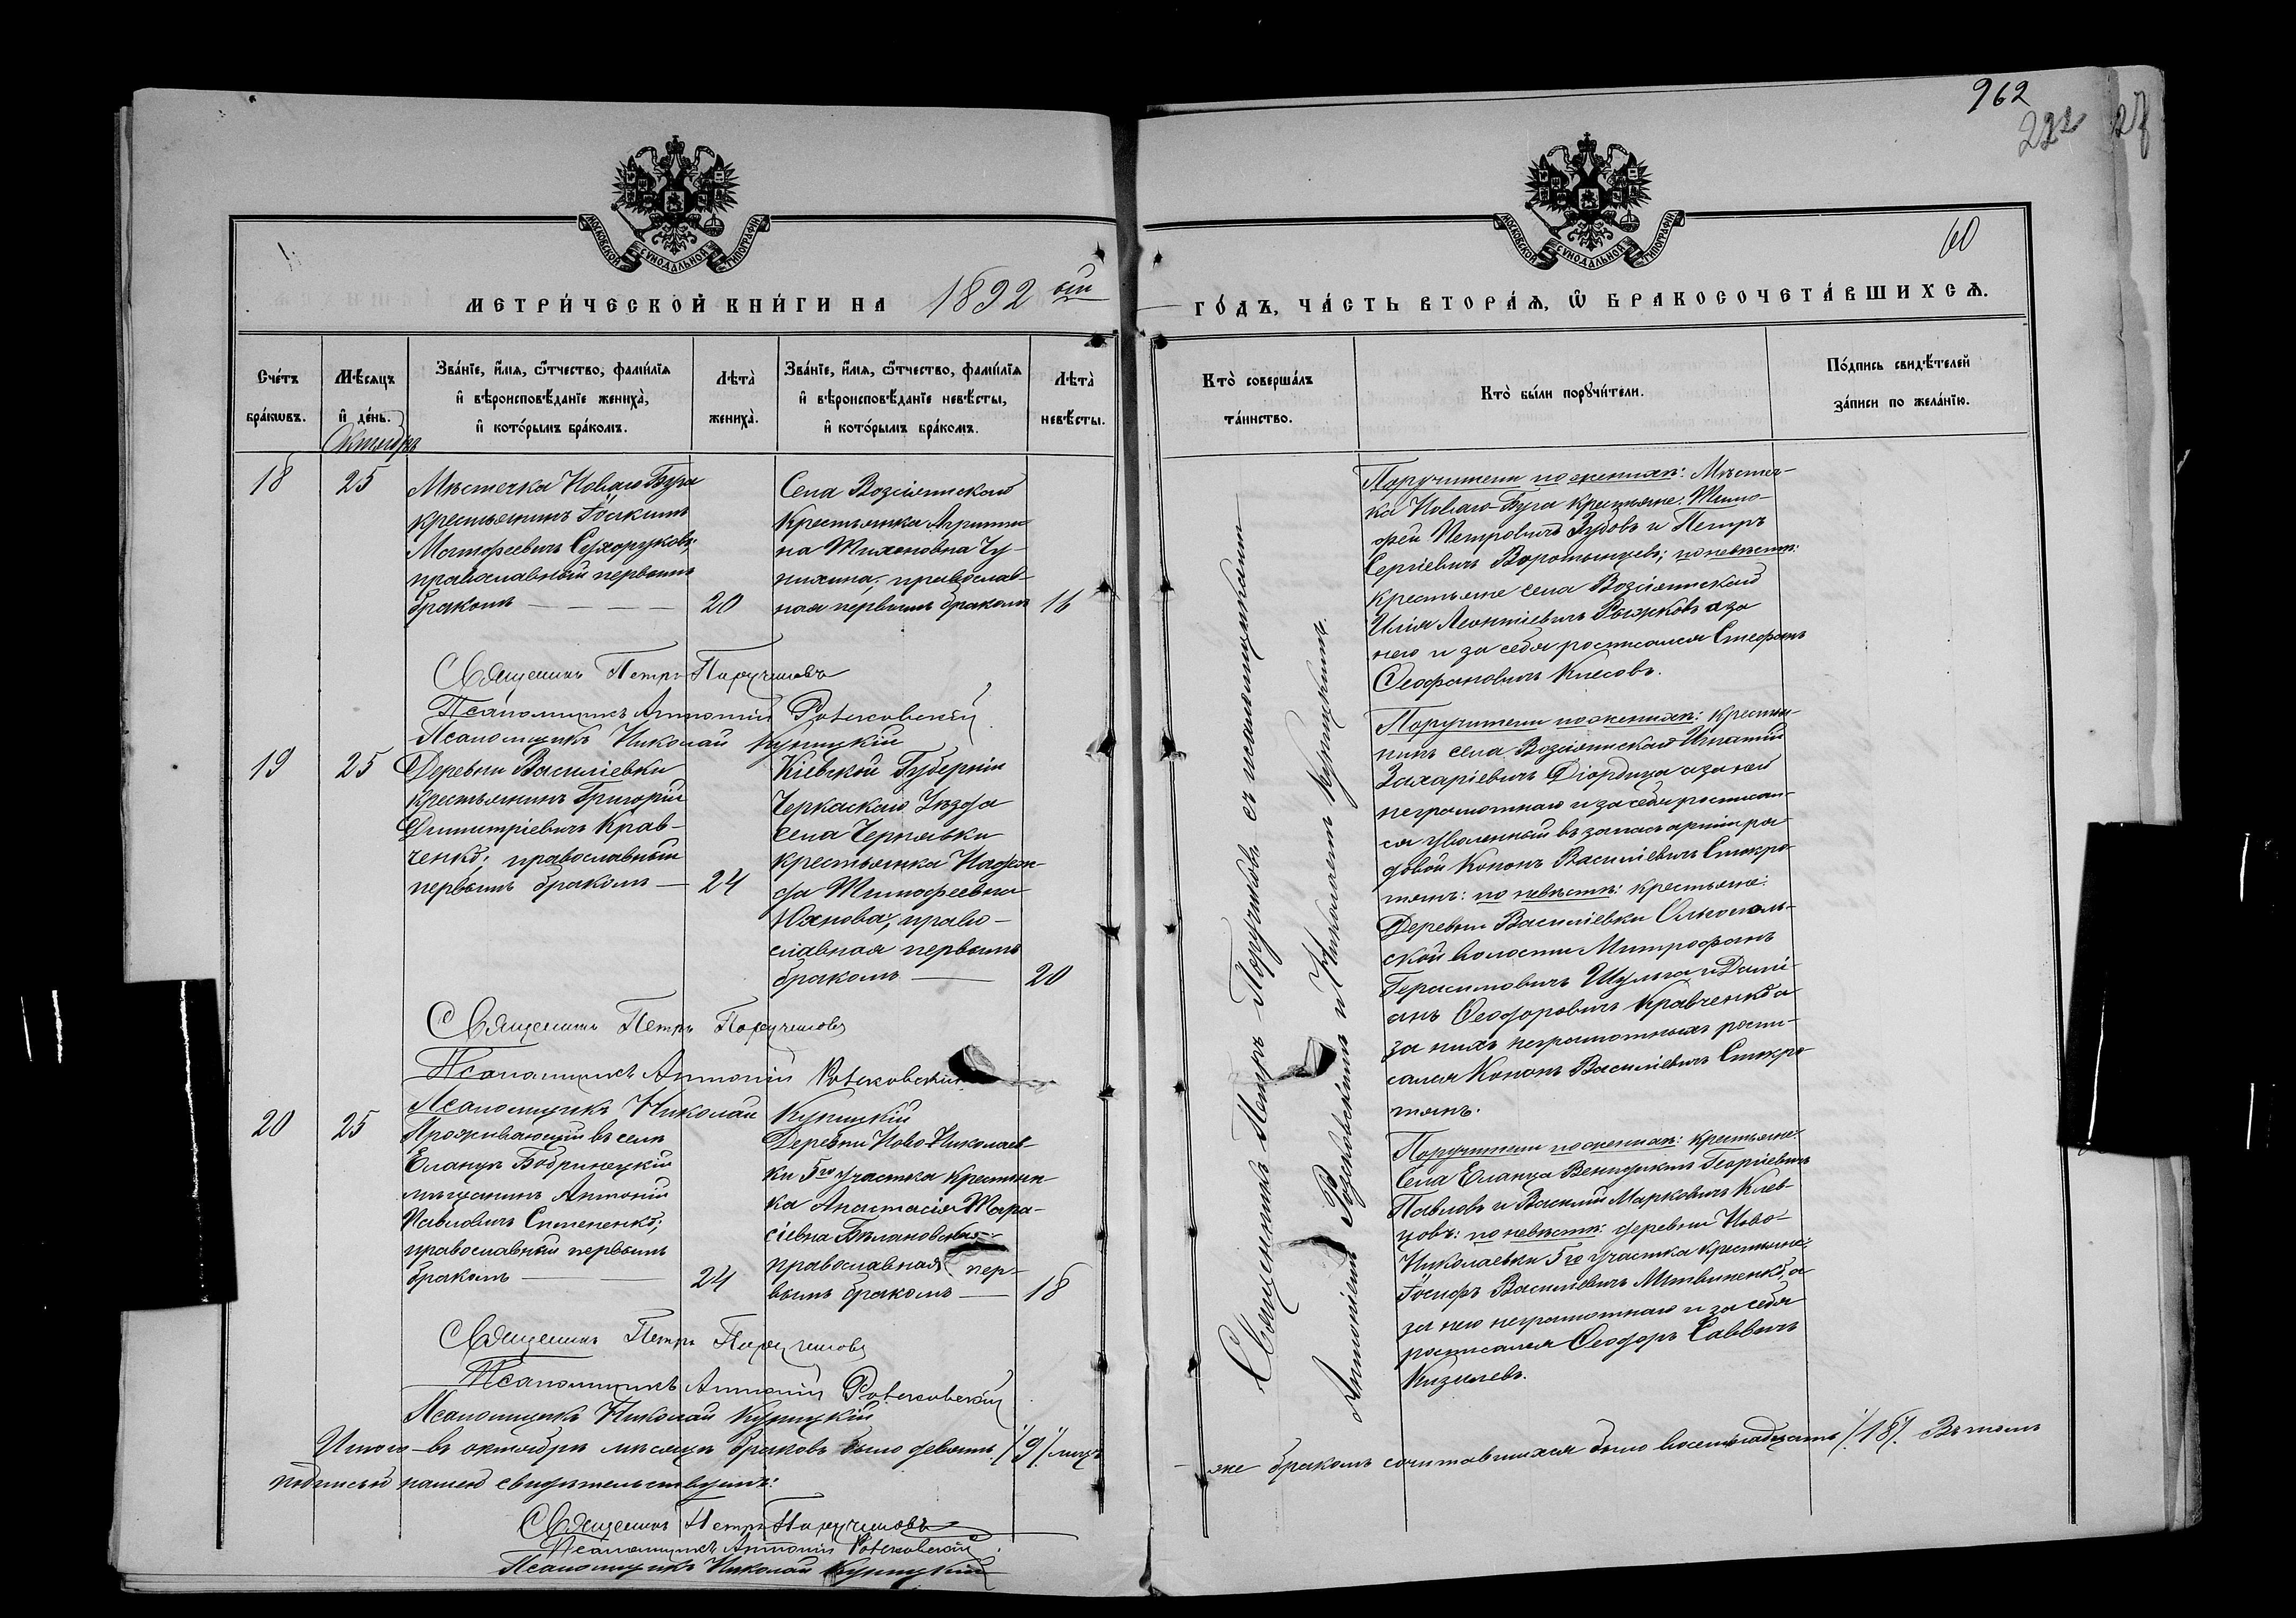 962
222
27
60
МОСКОВСКОЙ СѴНОДАЛЬНОЙ ТИПОГРАФІИ
МОСКОВСКОЙ СѴНОДАЛЬНОЙ ТИПОГРАФІИ
МЕТРИ́ЧЕСКОЙ КНИ́ГИ НА 1892 ой
ГО́ДЪ, ЧА́СТЬ ВТОРА́Ѧ, Ѽ БРАКОСОЧЕТА́ВШИХСѦ.
Сче́тъ бра́кѡвъ.
Мѣ́сяцъ и҆ де́нь.
Зва́нїе, и҆́мѧ, ѻ҆́тчество, фами́лїѧ и҆ вѣроисповѣ́данїе жениха̀, и҆ кото́рымъ бра́комъ.
Лѣта̀ жениха̀.
Зва́нїе, и҆́мѧ, ѻ҆́тчество, фами́лїѧ и҆ вѣроисповѣ́данїе невѣ́сты, и҆ кото́рымъ бра́комъ.
Лѣта̀ невѣ́сты.
Кто̀ соверша́лъ та́инство.
Кто̀ бы́ли порꙋчи́тели.
По́дпись свидѣ́телей за́писи по жела́нїю.
Октябрь
18
25
Мѣстечка Новаго Буга
крестьянинъ Іоакимъ
Матфеевичъ Сухоруковъ;
православный первымъ
бракомъ
20
Села Возсіятскаго
Крестьянка Агриппи-
на Тихоновна Чу-
пихина, православ-
ная первымъ бракомъ
16
Поручители по женихѣ: Мѣстеч-
ка Новаго-Буга крестьяне: Тимо-
фей Петровичъ Зубовъ и Петръ
Сергіевичъ Воротынцевъ; по невѣстѣ:
крестьяне села Возсіятскаго
Илія Леонтіевичъ Рыжковъ а за
него и за себя росписался Стефанъ
Ѳеофановичъ Киесовъ.
Священникъ Петръ Поручиковъ
Псаломщикъ Антоній
Псаломщикъ Николай Куницкій
19
25
Деревни Василіевки
крестьянинъ Григорій
Димитріевичъ Крав-
ченко; православный
первымъ бракомъ
24
Кіевской Губерніи
Черкаскаго Уѣзда
села Чернявки
крестьянка Надеж-
да Тимофеевна
Юхнова, право-
славная первымъ
бракомъ
20
Поручители по женихѣ: крестья-
нинъ села Возсіятскаго Игнатій
Захаріевичъ Діордица а за ней
неграмотнаго и за себя росписал-
ся уволенный въ запасъ арміи ря-
довой Кононъ Василіевичъ Стокро-
тянъ: по невѣстѣ: крестьяне:
Деревни Василіевки Ольгополь-
ской волости Митрофанъ
Герасимовичъ Шульга и Дамі-
анъ Ѳеодоровичъ Кравченко а
за нихъ неграмотныхъ роспи-
сался Кононъ Василіевичъ Стокро
тянъ.
Священникъ Петръ Поручиковъ
Псаломщикъ Антоній
Псаломщикъ Николай Куницкій
20
25
Проживающій въ селѣ
Еланцѣ Бобринецкій
мѣщанинъ Антоній
Павловичъ Степененко;
православный первымъ
бракомъ
24
Деревни Ново-Николаев-
ки 5го участка крестьян-
ка Анастасія Тара-
сіевна Бѣлановская
православная пер-
вымъ бракомъ
18
Поручители по женихѣ: крестьяне:
Села Еланца Венедиктъ Георгіевичъ
Павловъ и Василій Марковичъ Клев-
цовъ: по невѣстѣ: деревни Ново-
Николаевки 5го участка крестьяне:
Іосифъ Василіевичъ Литвиненко, а
за него неграмотнаго и за себя
росписался Ѳеодоръ Саввичъ
Кизилевъ.
Священникъ Петръ Поручиковъ
Псаломщикъ Антоній
Псаломщикъ Николай Куницкій
Священникъ Петръ Поручиковъ съ псаломщиками
Антоніемъ и Николаемъ Куницкимъ.
Итого въ октябрѣ мѣсяцѣ браковъ было девять /9/ лицъ
же бракомъ сочитавшихся было восемнадцать /18/. Въ томъ
подписью нашею свидѣтельствуемъ:
Священникъ Петръ Поручиковъ
Псаломщикъ Антоній
Псаломщикъ Николай Куницкій